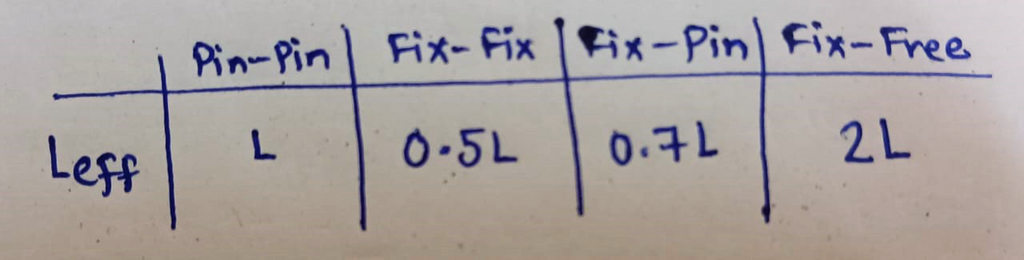 Pin-Pin Fix-Fix Fix-Pin Fix-Free
Leff L 0.5L 0.7L 2L